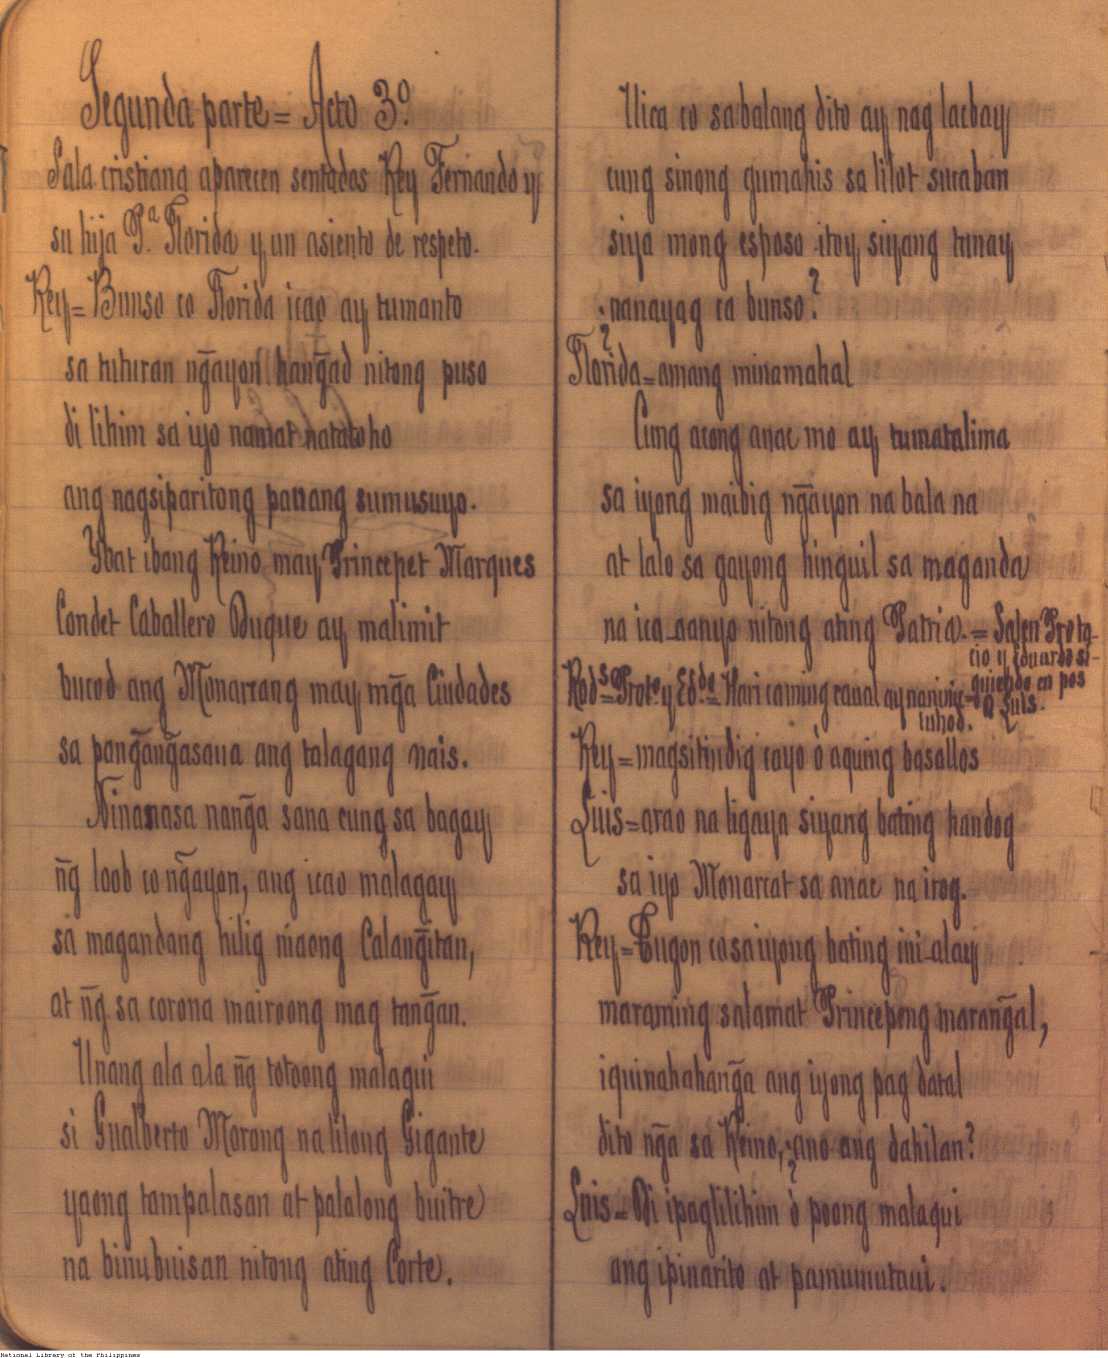 Segunda parte = Acto 3º.
Sala cristiana aparecen sentados Rey Fernando y
su hija P.ª Florida y un asiento de respeto.
Rey = Bunso co Florida icao ay tumanto
sa tuturan n͠gayon han͠gad nitong puso
di lihim sa iyo namat natatoho
ang nagsiparitong pauang sumusuyo.
Ybat ibang Reino may Princepet Marques
Condet Caballero Duque ay malimit
bucod ang Monarcang may m͠ga Ciudades
sa pan͠gan͠gasaua ang talagang nais.
Ninanasa nan͠ga sana cung sa bagay
n͠g loob co n͠gayon, ang icao malagay
sa magandang hilig niaong Calan͠gitan,
at n͠g sa corona mairoong mag tan͠gan.
Unang ala ala n͠g totoong malaqui
si Gualberto Morong na lilong Gigante
yaong tampalasan at palalong buitre
na binubuisan nitong ating Corte.
Uica co sa balang dito ay nag lacbay
cung sinong gumahis sa lilot sucaban
siya mong esposo itoy siyang tunay
¿nanayag ca bunso?
Florida = amang minamahal
Cung acong anac mo ay tumatalima
sa iyong maibig n͠gayon na bala na
at lalo sa gayong hinguil sa maganda
na ica-aanyo nitong ating Patria. = Salen Prota-
cio y Eduardo si-
guiendo en pos
a Luis.
Rod.s = Prot.o y Ed.do = Hari caming caual ay naninic-
luhod.
Rey = magsitindig cayo ò aquing basallos
Luis = arao na ligaya siyang bating handog
sa iyo Monarcat sa anac na irog.
Rey = Tugon co sa iyong bating ini-alay
maraming salamat Princepeng maran͠gal,
iquinahahan͠ga ang iyong pag datal
dito n͠ga sa Reino, ¿ano ang dahilan?
Luis = Di ipaglilihim ò poong malaqui
ang ipinarito at pamumutaui.
National Library of the Philippines